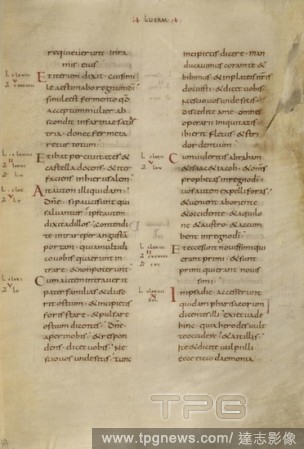 LUCAM
requieverunt in ra
mis eius
Et iterum dixit cui simi
le aestimabo regnum di
simile est fermento qd
acceptum mulier ab
scondit in farinae sata
tria donec fermenta
retur totum
Et ibat per civitates &
castella docens & iter
faciens in hierusalem
Ait autem illi quidam
Dne si pauci sunt qui
salvantur ipse autem
dixit ad illos contendi
te intrare per angustā
portam quia multi dico
vobis querunt in
trare & non poterunt
Cum autem intraverit
pater familias & cluse
rit ostium & incipietis
foris stare & pulsare
ostium dicentes Dne
aperi nobis & respon
dens dicet vobis Ne
scio vos unde sitis Tunc
incipietis dicere man
ducavimus coram te &
bibimus & in plateis nris
docuisti & dicet vobis
nescio vos unde sitis
discedite a me omnes
operarii iniquitatis
ibi erit fletus & stri
dor dentium
Cum videritis abraham
& isac & iacob & omnes
prophetas in regno di
vos autem expelli foras
& venient ab oriente
& occidente & aquilo
ne & austro & accum
bent in regno di
Et ecce sunt novissimi qui
erant primi & sunt
primi qui erant novis
simi
In ipsa die accesserunt
quidam pharisaeorum
dicentes illi exi & vade
hinc quia herodes vult
te occidere & ait illis
ite & dicite vulpi illi
ecce eicio daemonia
TPG
www.tpgnews.com/達志影像